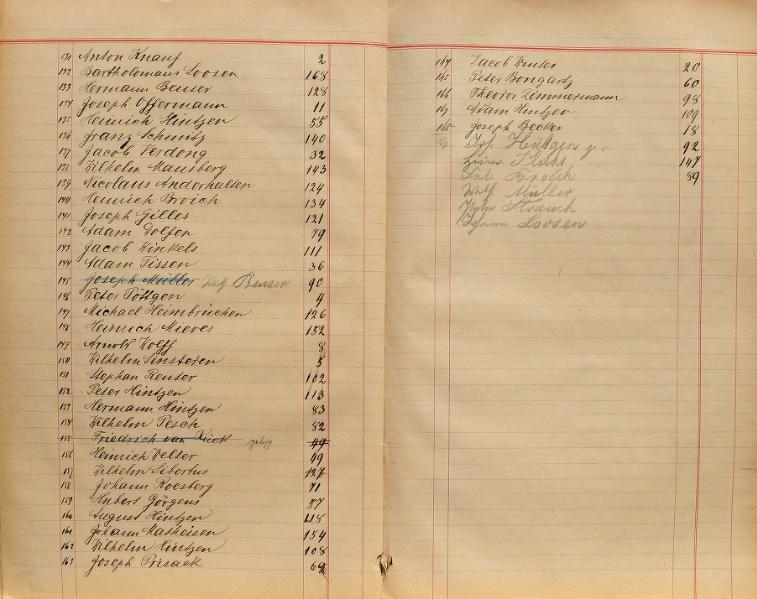 131 Anton Knauf 2
132 Bartholomäus Loosen 168
133 Hermann Beuser 128
134 Joseph Offermann 11
135 Heinrich Hintzen 55
136 Franz Schmitz 140
137 Jacob Verdong 32
138 Wilhelm Mausberg 143
139 Nicolaus Anderhalten 124
140 Heinrich Broich 134
141 Joseph Gilles 121
142 Adam Dolfen 79
143 Jacob Winkels 111
144 Adam Tissen 36
145 Joseph Müller Beuser 90
146 Peter Pöttgen 4
147 Michael Heimbrüchen 126
148 Heinrich Mieves 152
149 Arnold Wolff 8
150 Wilhelm Linstoren 5
151 Stephan Reuter 102
152 Peter Hintzen 113
153 Hermann Hintzen 83
154 Wilhelm Pesch 82
155 Friedrich van Kück 49
156 Heinrich Velser 49
157 Wilhelm Libertus 127
158 Johann Roesberg 71
159 Hubert Görgens 87
160 August Hintzen 118
161 Johann Matheisen 154
162 Wilhelm Hintzen 108
163 Joseph Prisack
164 Jacob Reuter 20
165 Peter Bongartz 60
166 Theodor Zimmermann 98
167 Adam Hintzen 109
168 Joseph Becker 18
169 Jos. Hüttgen jr. 92
147
Broich 89
Müller
Strauch
Loosen